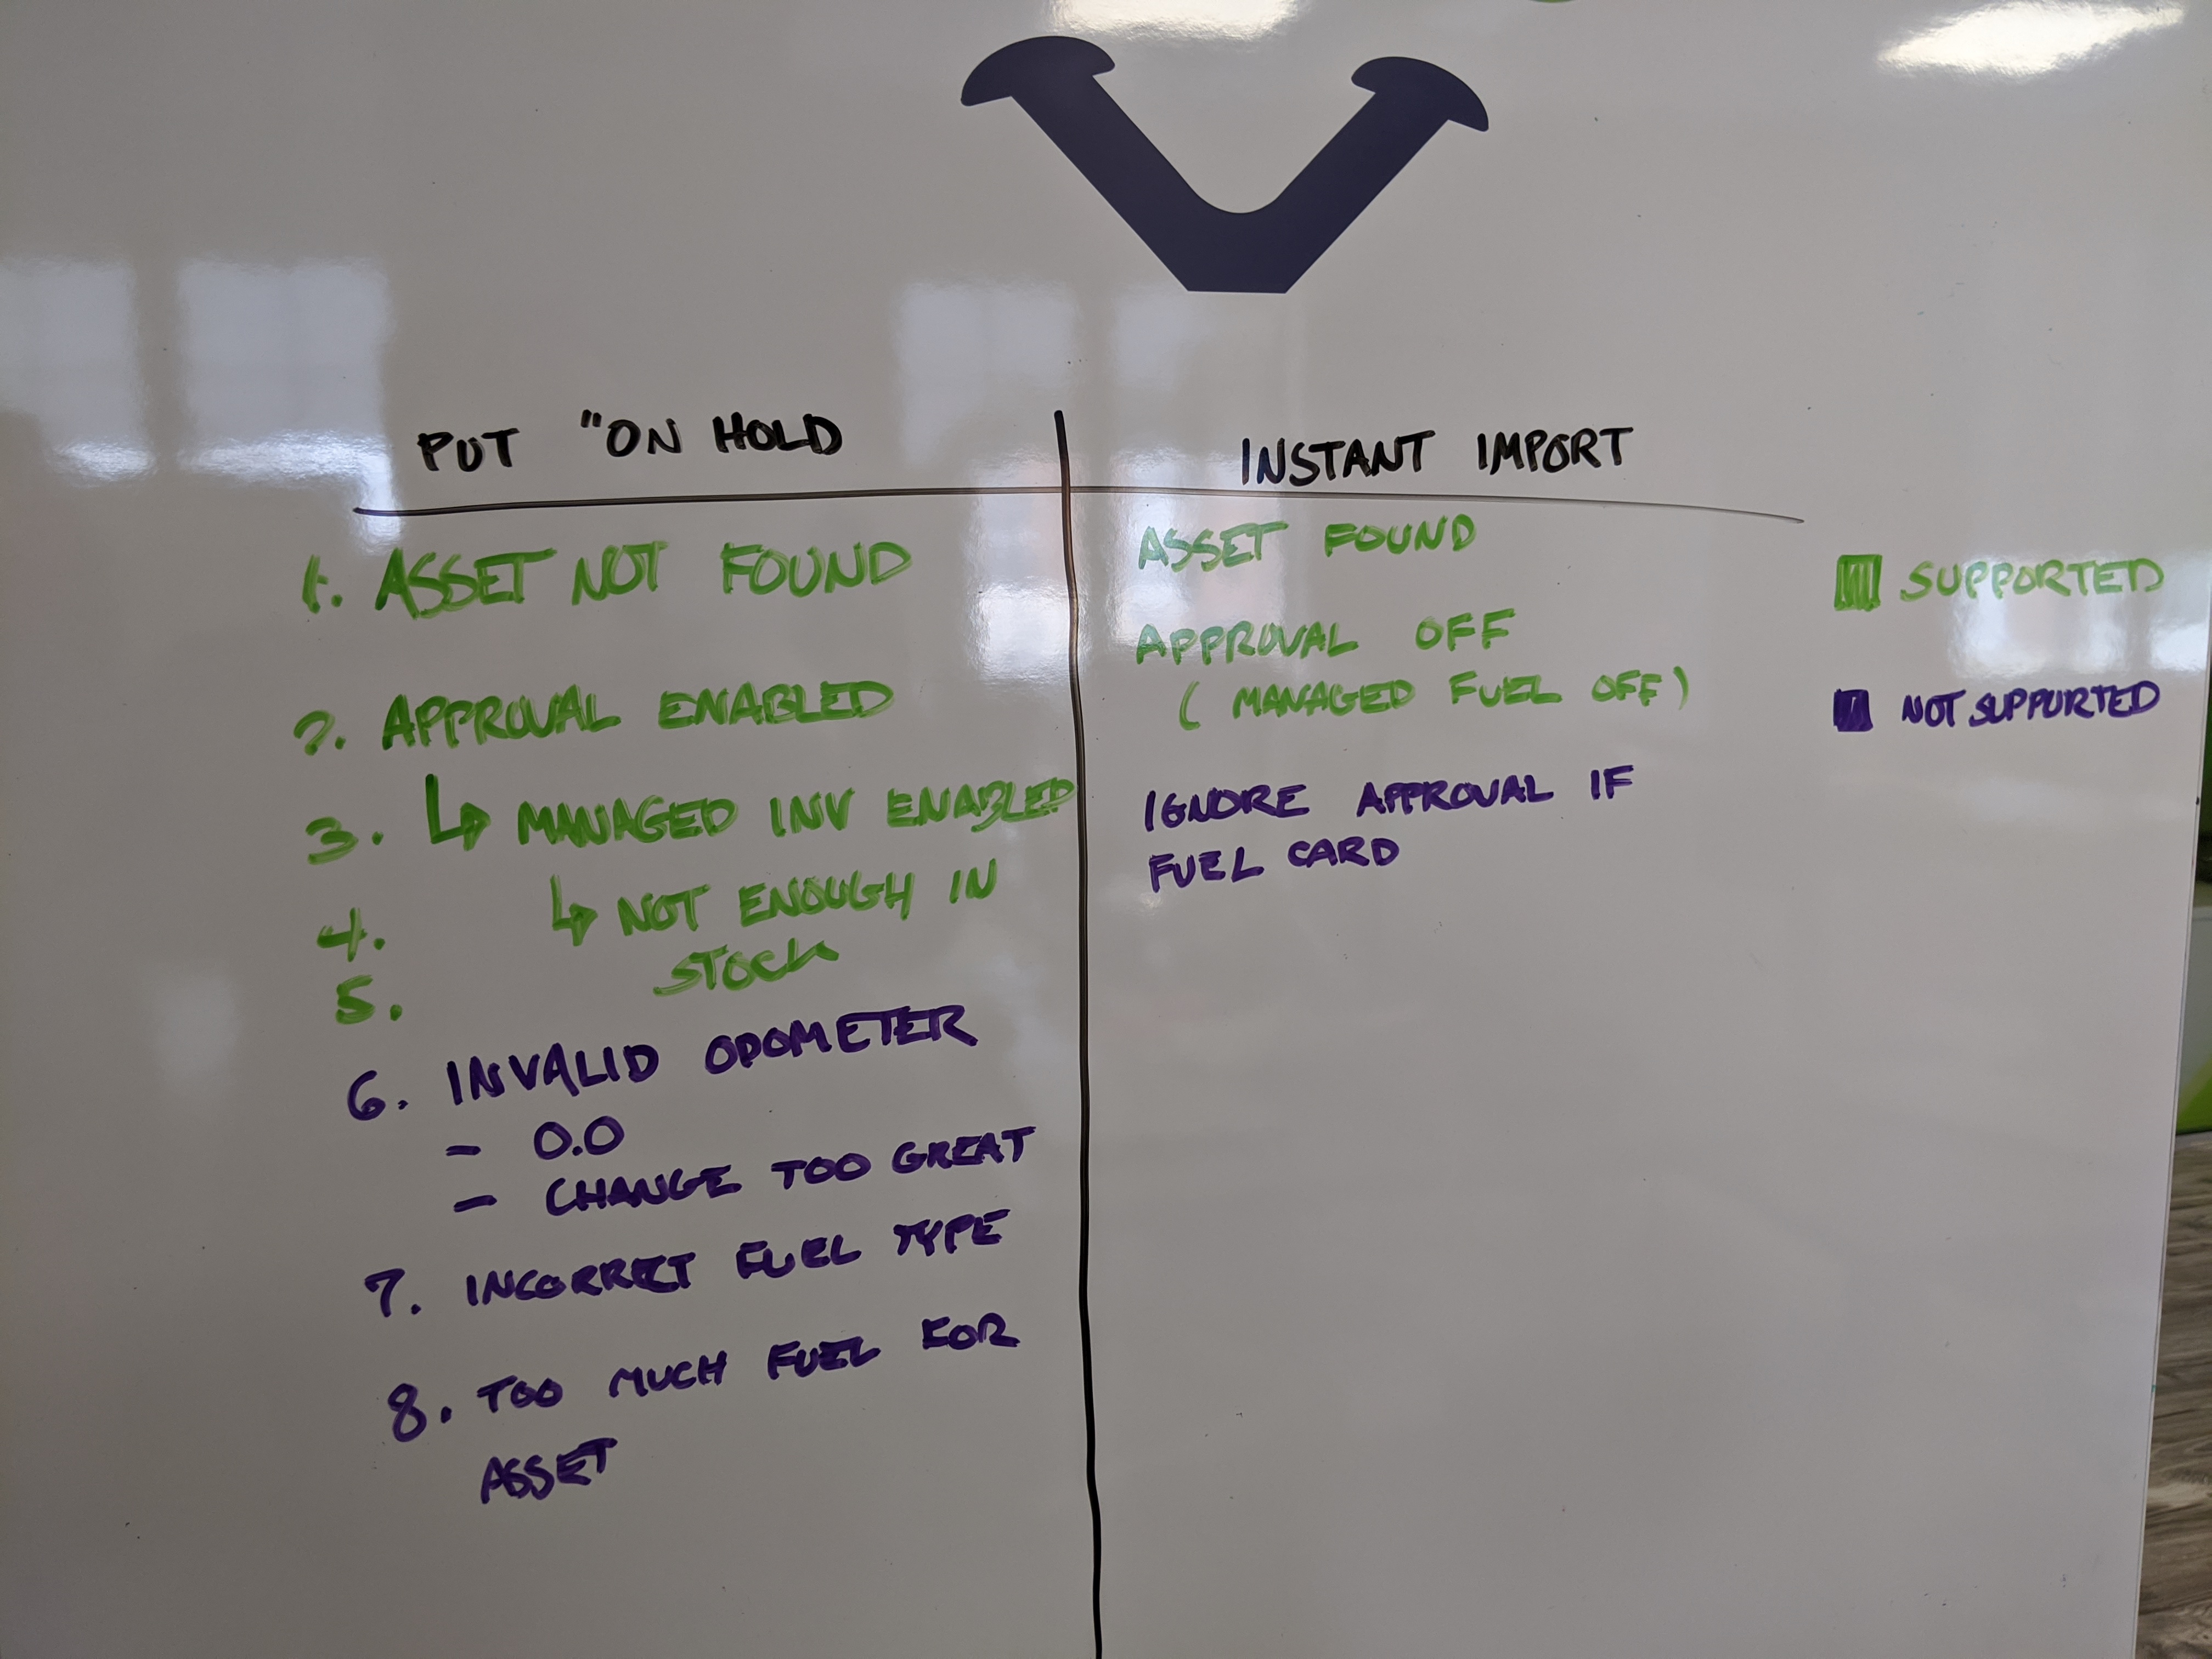 PUT "ON HOLD
INSTANT IMPORT
1. ASSET NOT FOUND
2. APPROVAL ENABLED
3. ↳ MANAGED INV ENABLED
4. ↳ NOT ENOUGH IN
STOCK
5.
6. INVALID ODOMETER
- 0.0
- CHANGE TOO GREAT
7. INCORRECT FUEL TYPE
8. TOO MUCH FUEL FOR
ASSET
ASSET FOUND
APPROVAL OFF
( MANAGED FUEL OFF )
IGNORE APPROVAL IF
FUEL CARD
SUPPORTED
NOT SUPPORTED